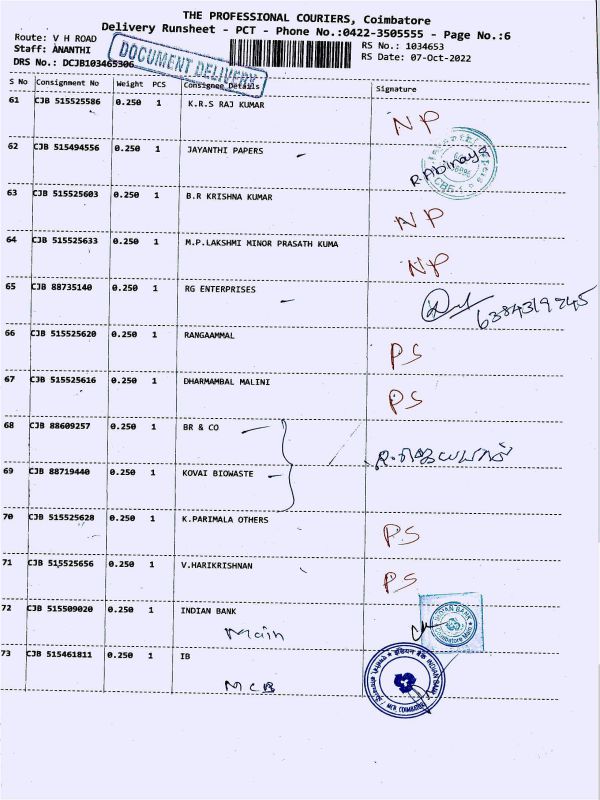 THE PROFESSIONAL COURIERS, Coimbatore
Delivery Runsheet - PCT - Phone No.:0422-3505555 - Page No.:6
Route: V H ROAD
RS No.: 1034653
Staff: ANANTHI
RS Date: 07-Oct-2022
DRS No.: DCJB103465306
DOCUMENT DELIVERY
S No Consignment No Weight PCS Consignee Details Signature
61 CJB 515525586 0.250 1 K.R.S RAJ KUMAR NP
62 CJB 515494556 0.250 1 JAYANTHI PAPERS R.Abinaya
CBE
63 CJB 515525603 0.250 1 B.R KRISHNA KUMAR NP
64 CJB 515525633 0.250 1 M.P.LAKSHMI MINOR PRASATH KUMA NP
65 CJB 88735140 0.250 1 RG ENTERPRISES 6384319245
66 CJB 515525620 0.250 1 RANGAAMMAL PS
67 CJB 515525616 0.250 1 DHARMAMBAL MALINI PS
68 CJB 88609257 0.250 1 BR & CO
69 CJB 88719440 0.250 1 KOVAI BIOWASTE
70 CJB 515525628 0.250 1 K.PARIMALA OTHERS PS
71 CJB 515525656 0.250 1 V.HARIKRISHNAN PS
72 CJB 515509020 0.250 1 INDIAN BANK
Main
INDIAN BANK
Coimbatore Main
73 CJB 515461811 0.250 1 IB
MCB
इंडियन बैंक INDIAN BANK